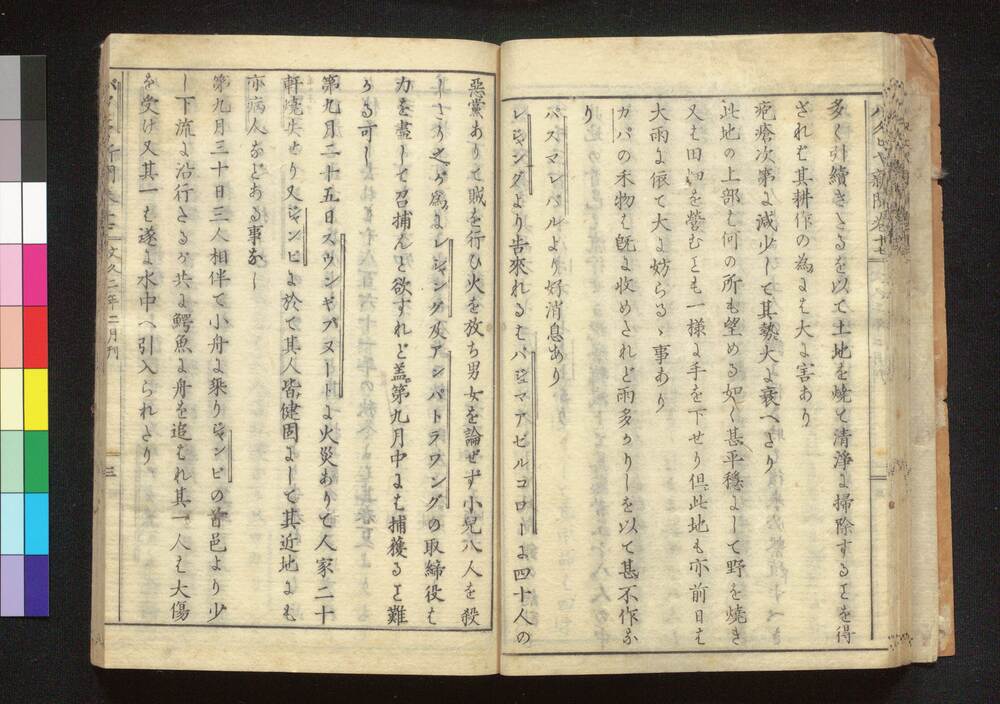 多く引續きたるを以て土地を焼て清浄に掃除することを得
ざれむ其耕作の為にも大に害あり
疱瘡次第に減少して其勢大に衰へたり
此地の上部も何の所も望める如く甚平穏にして野を焼き
又も田畑を營むことも一様に手を下せり但此地も亦前日も
大雨に依て大に妨らるゝ事あり
カパの禾物も既に收めたれど雨多かりしを以て甚不作な
り
パスマンバルより好消息あり
レジャングより告來れるもバジマアビルコローに四十人の
惡黨ありて賊を行ひ火を放ち男女を論ぜず小兒八人を殺
したり之が為にレジャング及アンパトラワングの取締役も
力を盡して召捕んと欲すれど蓋第九月中にも捕獲ること難
かる可し
第九月二十五日スウンギプヌートに火災ありて人家二十
軒焼失せり又ジャンビに於て其人皆健固にして其近地にも
亦病人などある事なし
第九月三十日三人相伴て小舟に乘りジャンビの首邑より少
し下流に沿行たるが共に鰐魚に舟を追れ其一人も大傷
を受け又其一も遂に水中へ引入られたり
文久二年二月刊
三